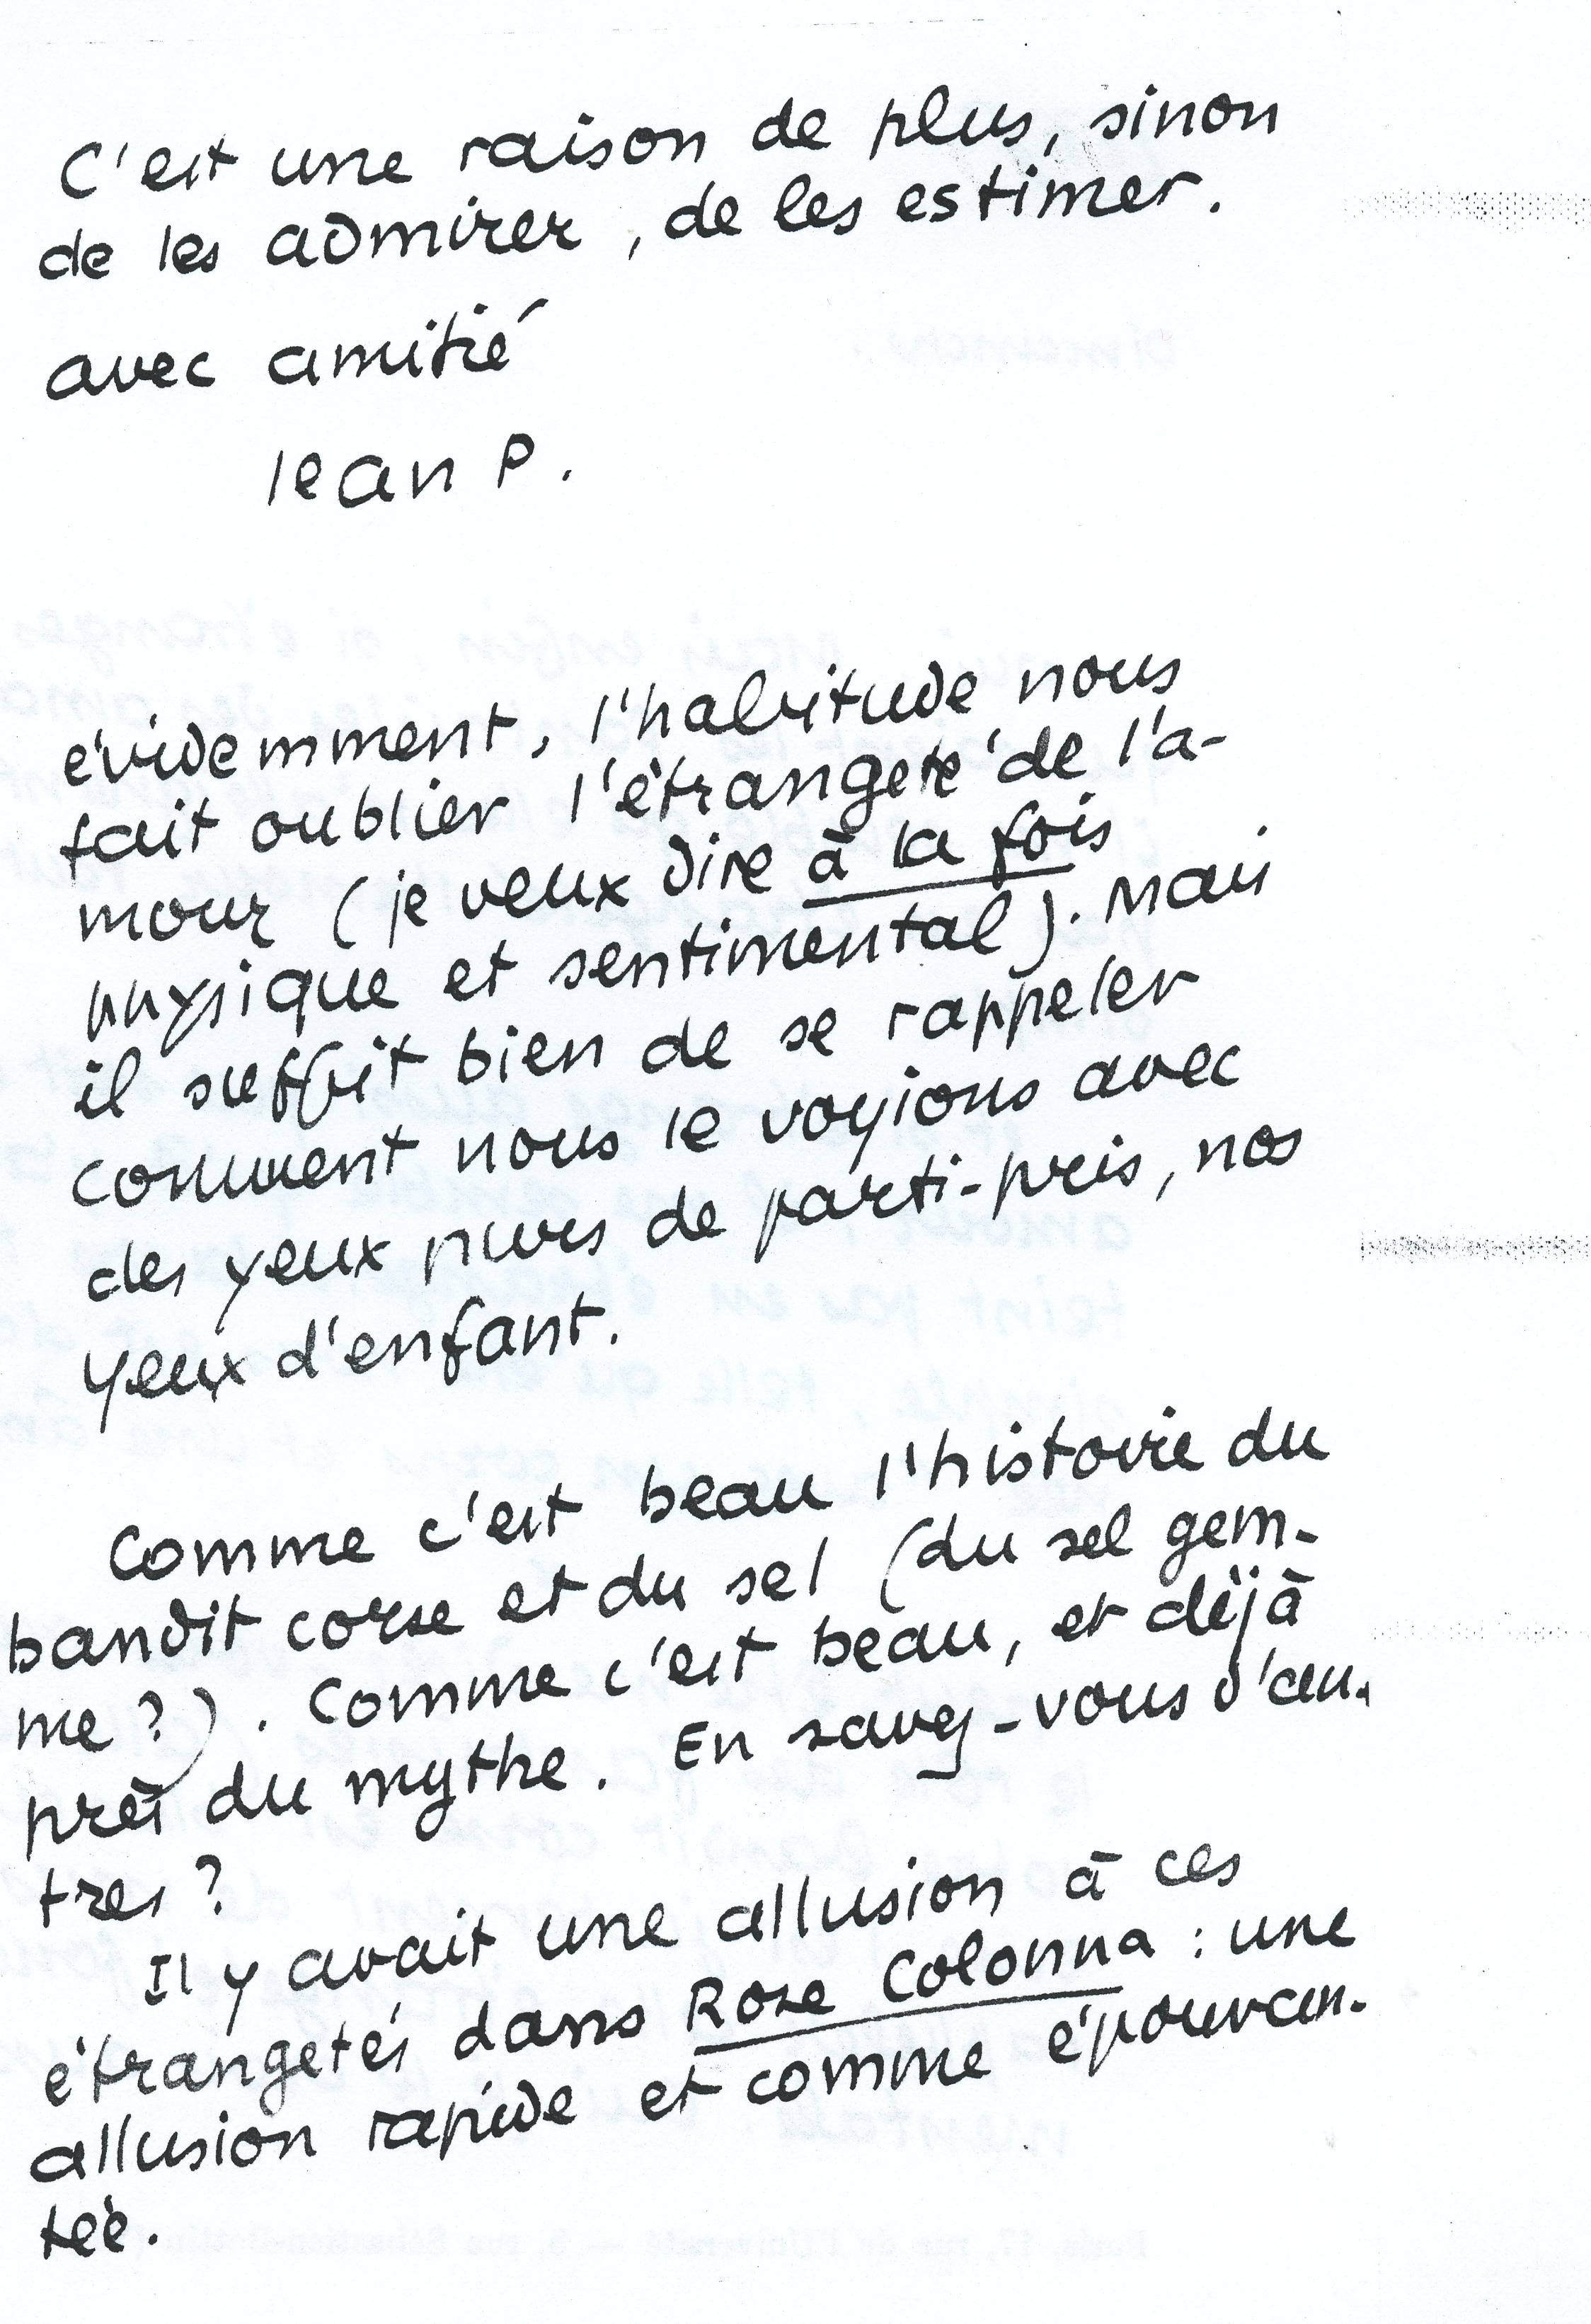 C'est une raison de plus, sinon
de les admirer, de les estimer.
avec amitié
Jean P.
évidemment, l'habitude nous
fait oublier l'étrangeté de l'a-
mour (je veux dire à la fois
physique et sentimental). Mais
il suffit bien de se rappeler
comment nous le voyions avec
des yeux purs de parti-pris, nos
yeux d'enfant.
Comme c'est beau l'histoire du
bandit corse et du sel (du sel gem-
me?). Comme c'est beau, et déjà
près du mythe. En savez-vous d'au-
tres?
Il y avait une allusion à ces
étrangetés dans Rose Colonna : une
allusion rapide et comme épouvan-
tée.